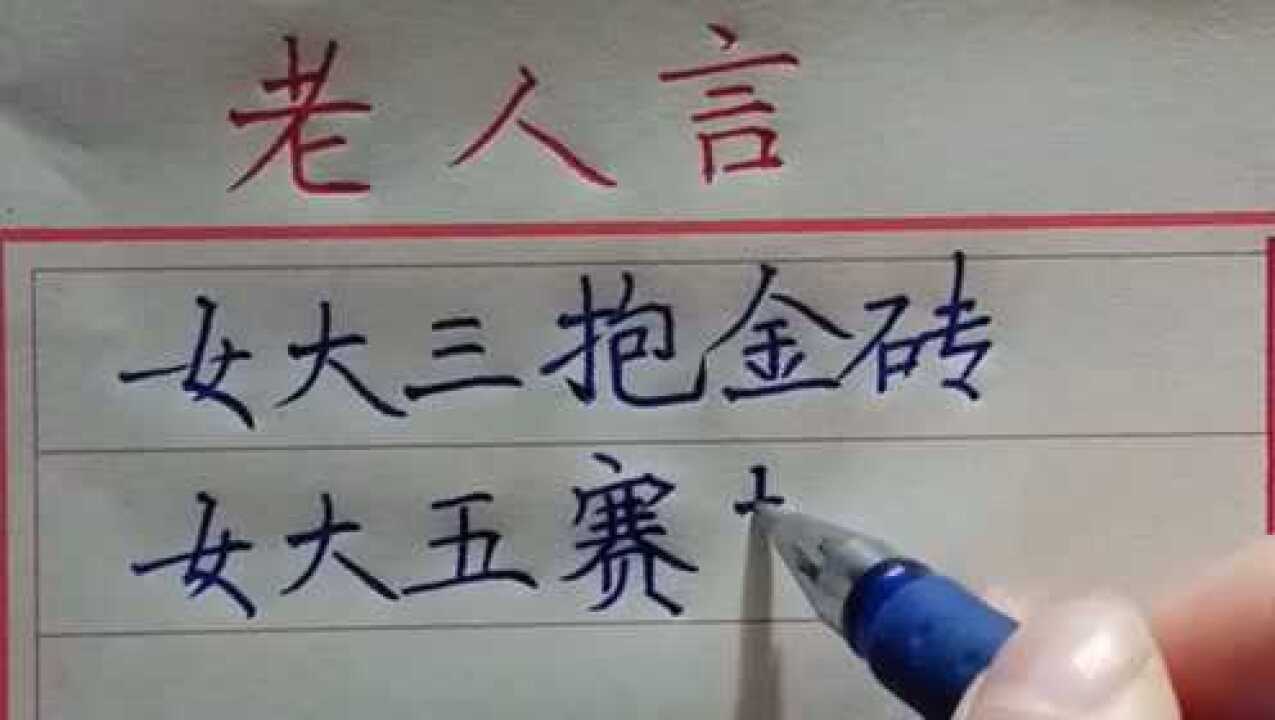 老人言
女大三抱金砖
女大五赛